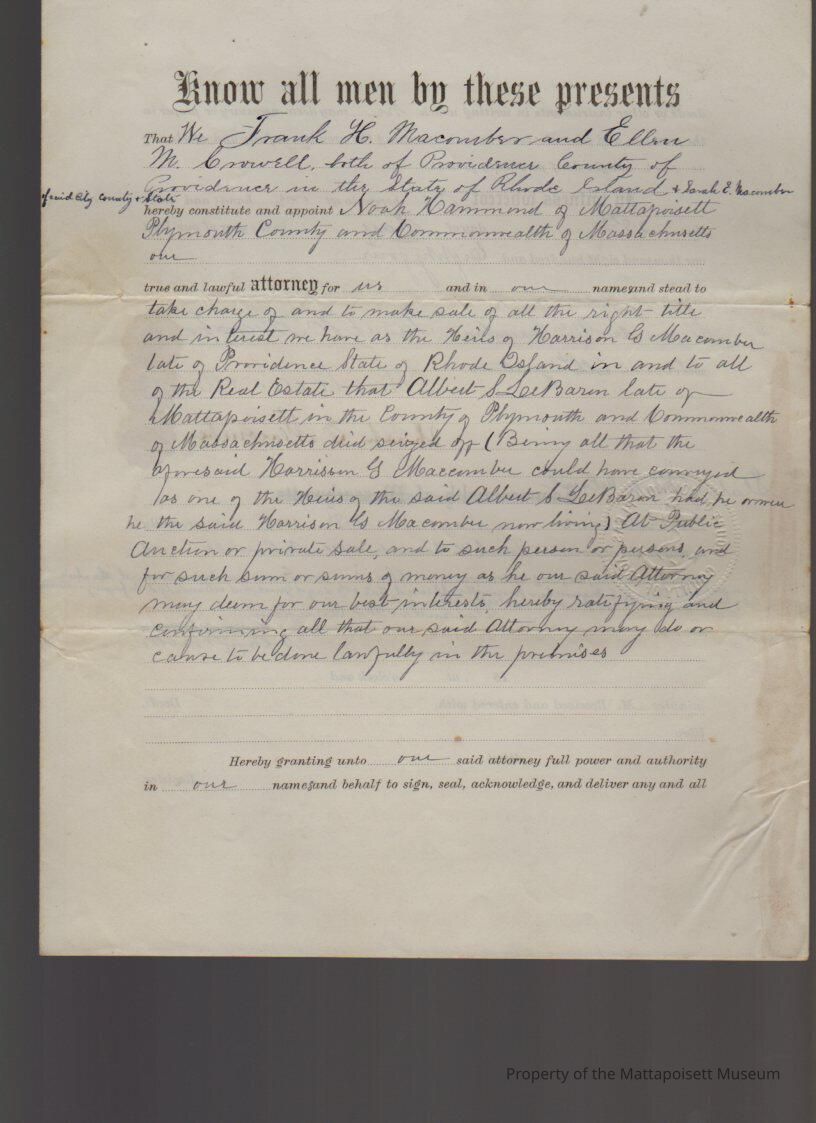 Know all men by these presents
That We Frank H. Macomber and Ellen
M. Crowell, both of Providence County of
Providence in the State of Rhode Island & Sarah E. Macomber
of said City County & State
hereby constitute and appoint Noah Hammond of Mattapoisett
Plymouth County and Commonwealth of Massachusetts
our
true and lawful attorney for us and in our names and stead to
take charge of and to make sale of all the right title
and interest we have as the Heirs of Harrison G Macomber
late of Providence State of Rhode Island in and to all
of the Real Estate that Albert S LeBaron late of
Mattapoisett in the County of Plymouth and Commonwealth
of Massachusetts died seized of (Being all that the
aforesaid Harrison G Maccomber could have conveyed
as one of the Heirs of the said Albert S LeBaron had he
he the said Harrison G Macomber now living) At Public
Auction or private sale, and to such person or persons, and
for such sum or sums of money as he our said Attorney
may deem for our best interests, hereby ratifying and
confirming all that our said Attorney may do or
cause to be done lawfully in the premises
Hereby granting unto our said attorney full power and authority
in our names and behalf to sign, seal, acknowledge, and deliver any and all
Property of the Mattapoisett Museum